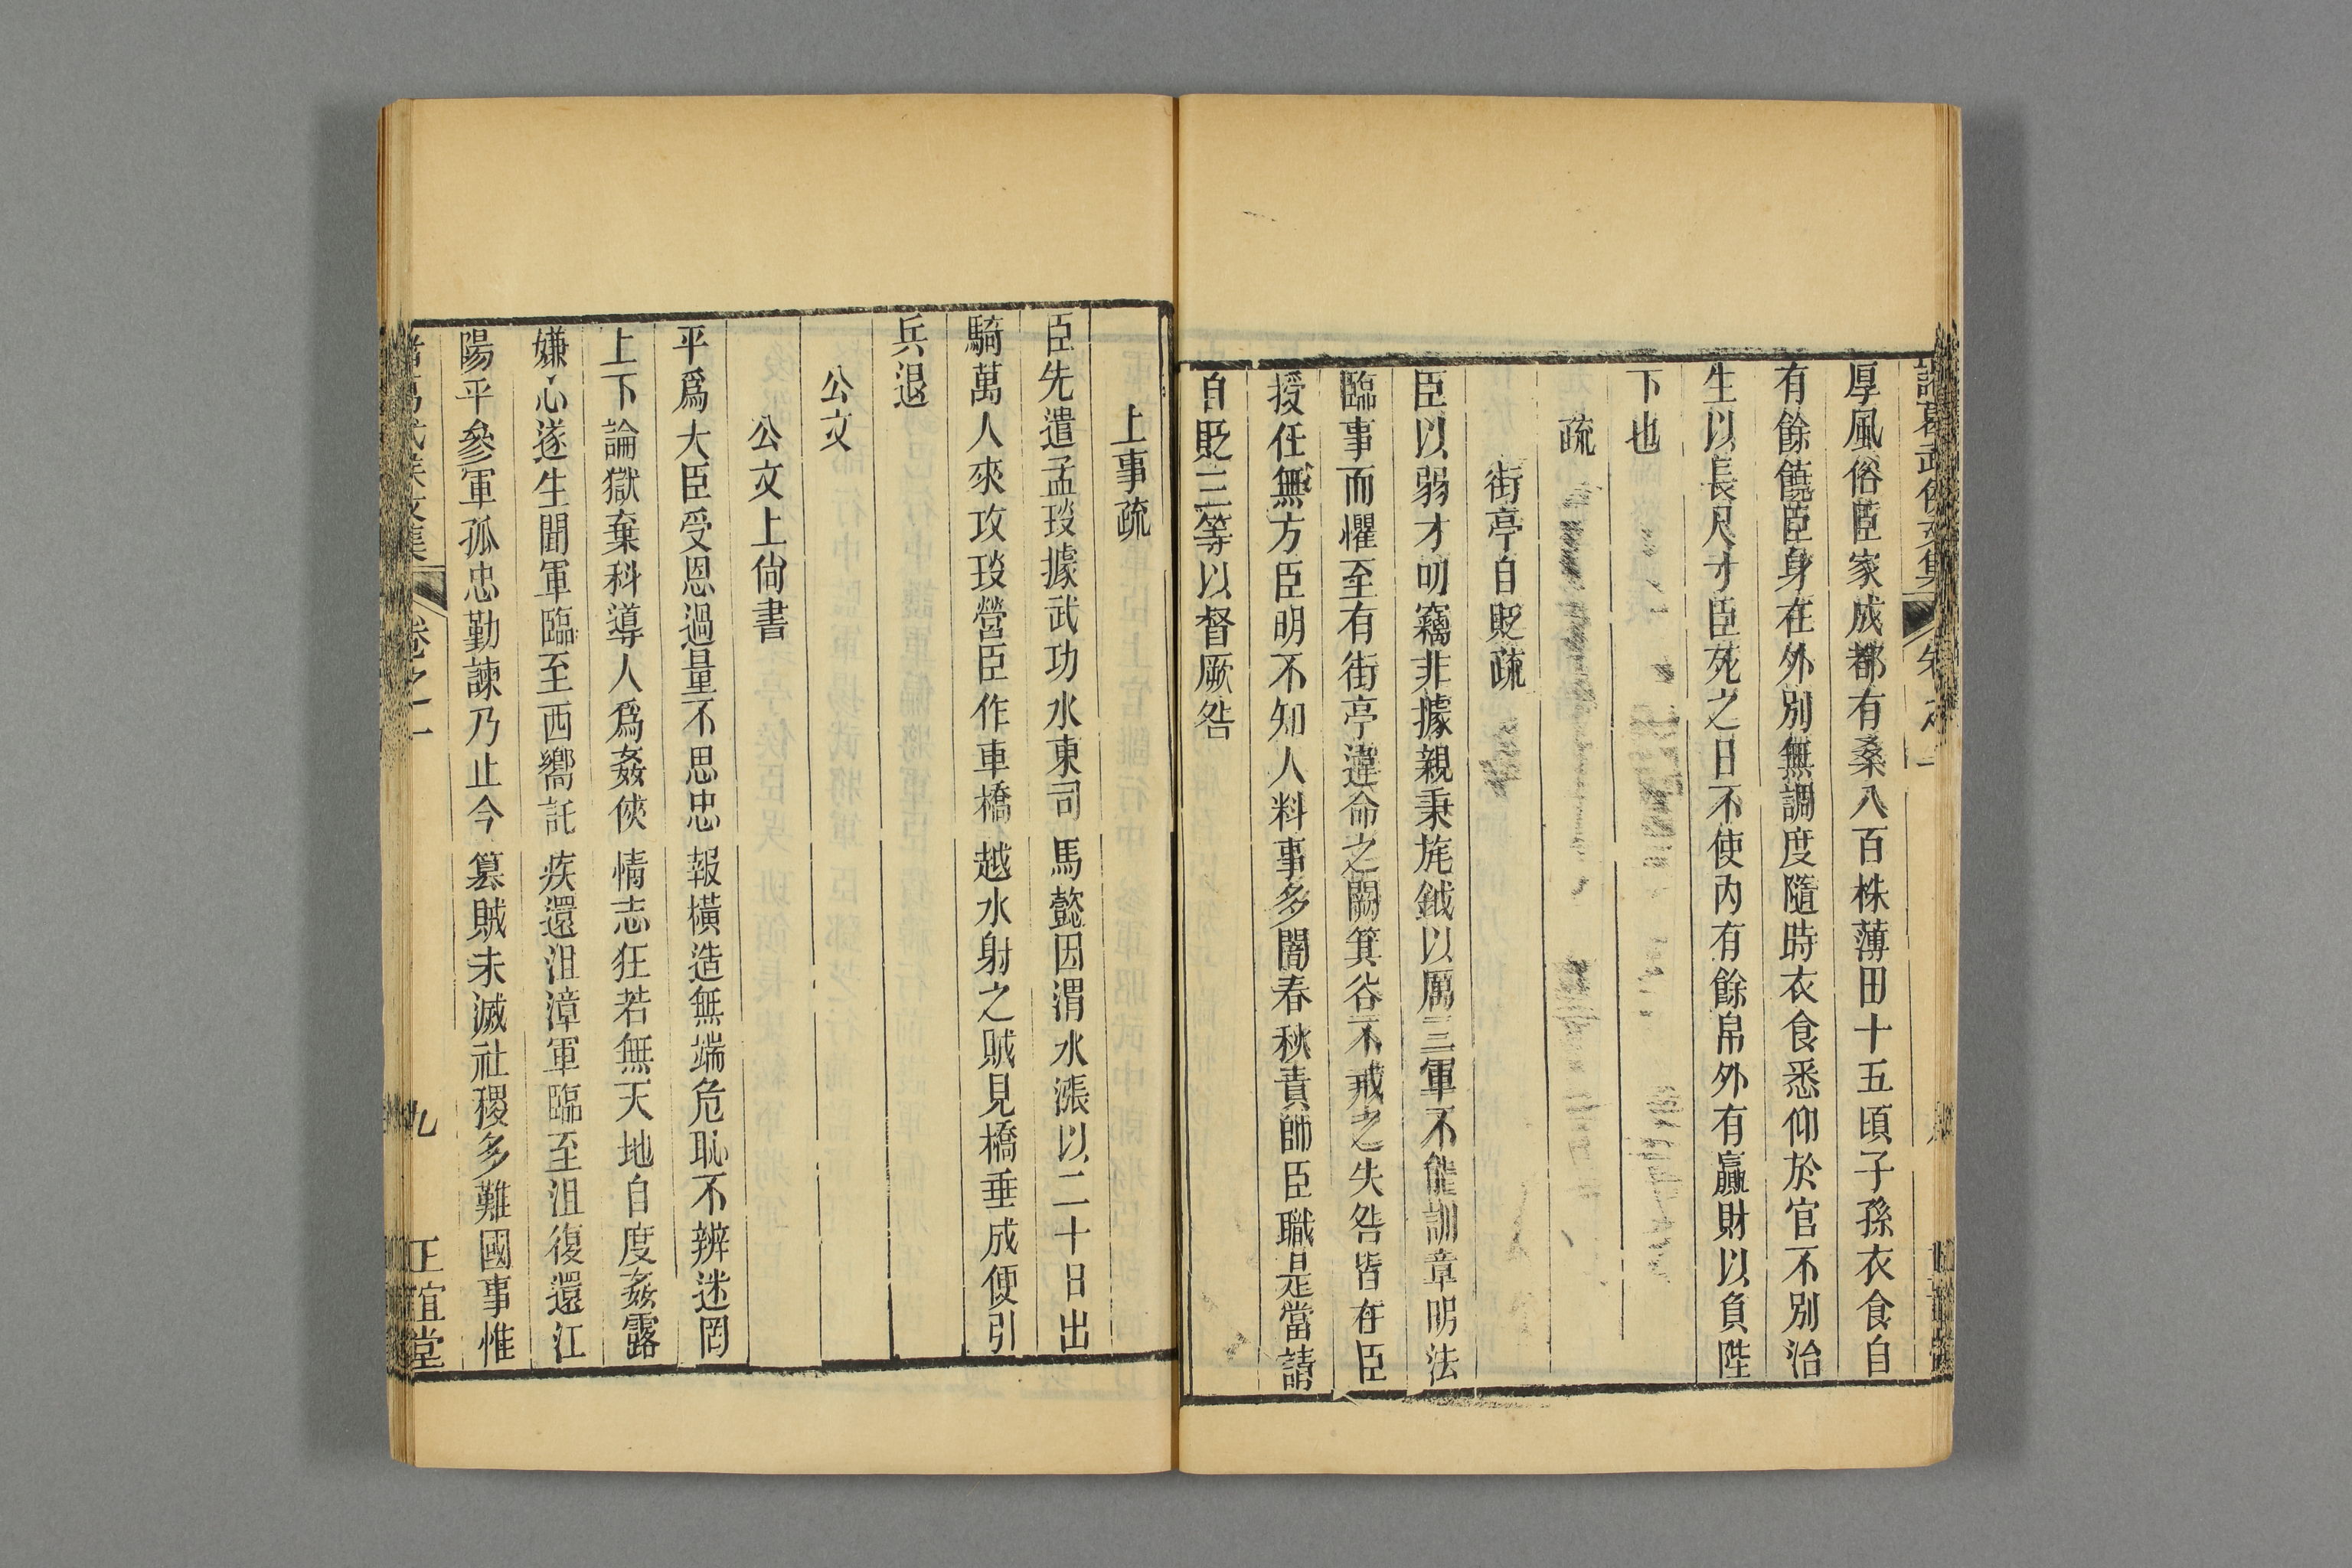 厚風俗臣家成都有桑八百株薄田十五頃子孫衣食自
有餘饒臣身在外別無調度隨時衣食悉仰於官不別治
生以長尺寸臣死之日不使內有餘帛外有贏財以負陛
下也
疏
街亭自貶疏
臣以弱才叨竊非據親秉旄鉞以厲三軍不能訓章明法
臨事而懼至有街亭違命之闕箕谷不戒之失咎皆在臣
授任無方臣明不知人料事多闇春秋責帥臣職是當請
自貶三等以督厥咎
上事疏
臣先遣孟琰據武功水東司馬懿因渭水漲以二十日出
騎萬人來攻琰營臣作車橋越水射之賊見橋垂成便引
兵退
公文
公文上尙書
平爲大臣受恩過量不思忠報橫造無端危恥不辨迷罔
上下論獄棄科導人爲姦俠情志狂若無天地自度姦露
嫌心遂生聞軍臨至西嚮託疾還沮漳軍臨至沮復還江
陽平參軍孤忠勤諫乃止今篡賊未滅社稷多難國事惟
卷之一
九
正誼堂